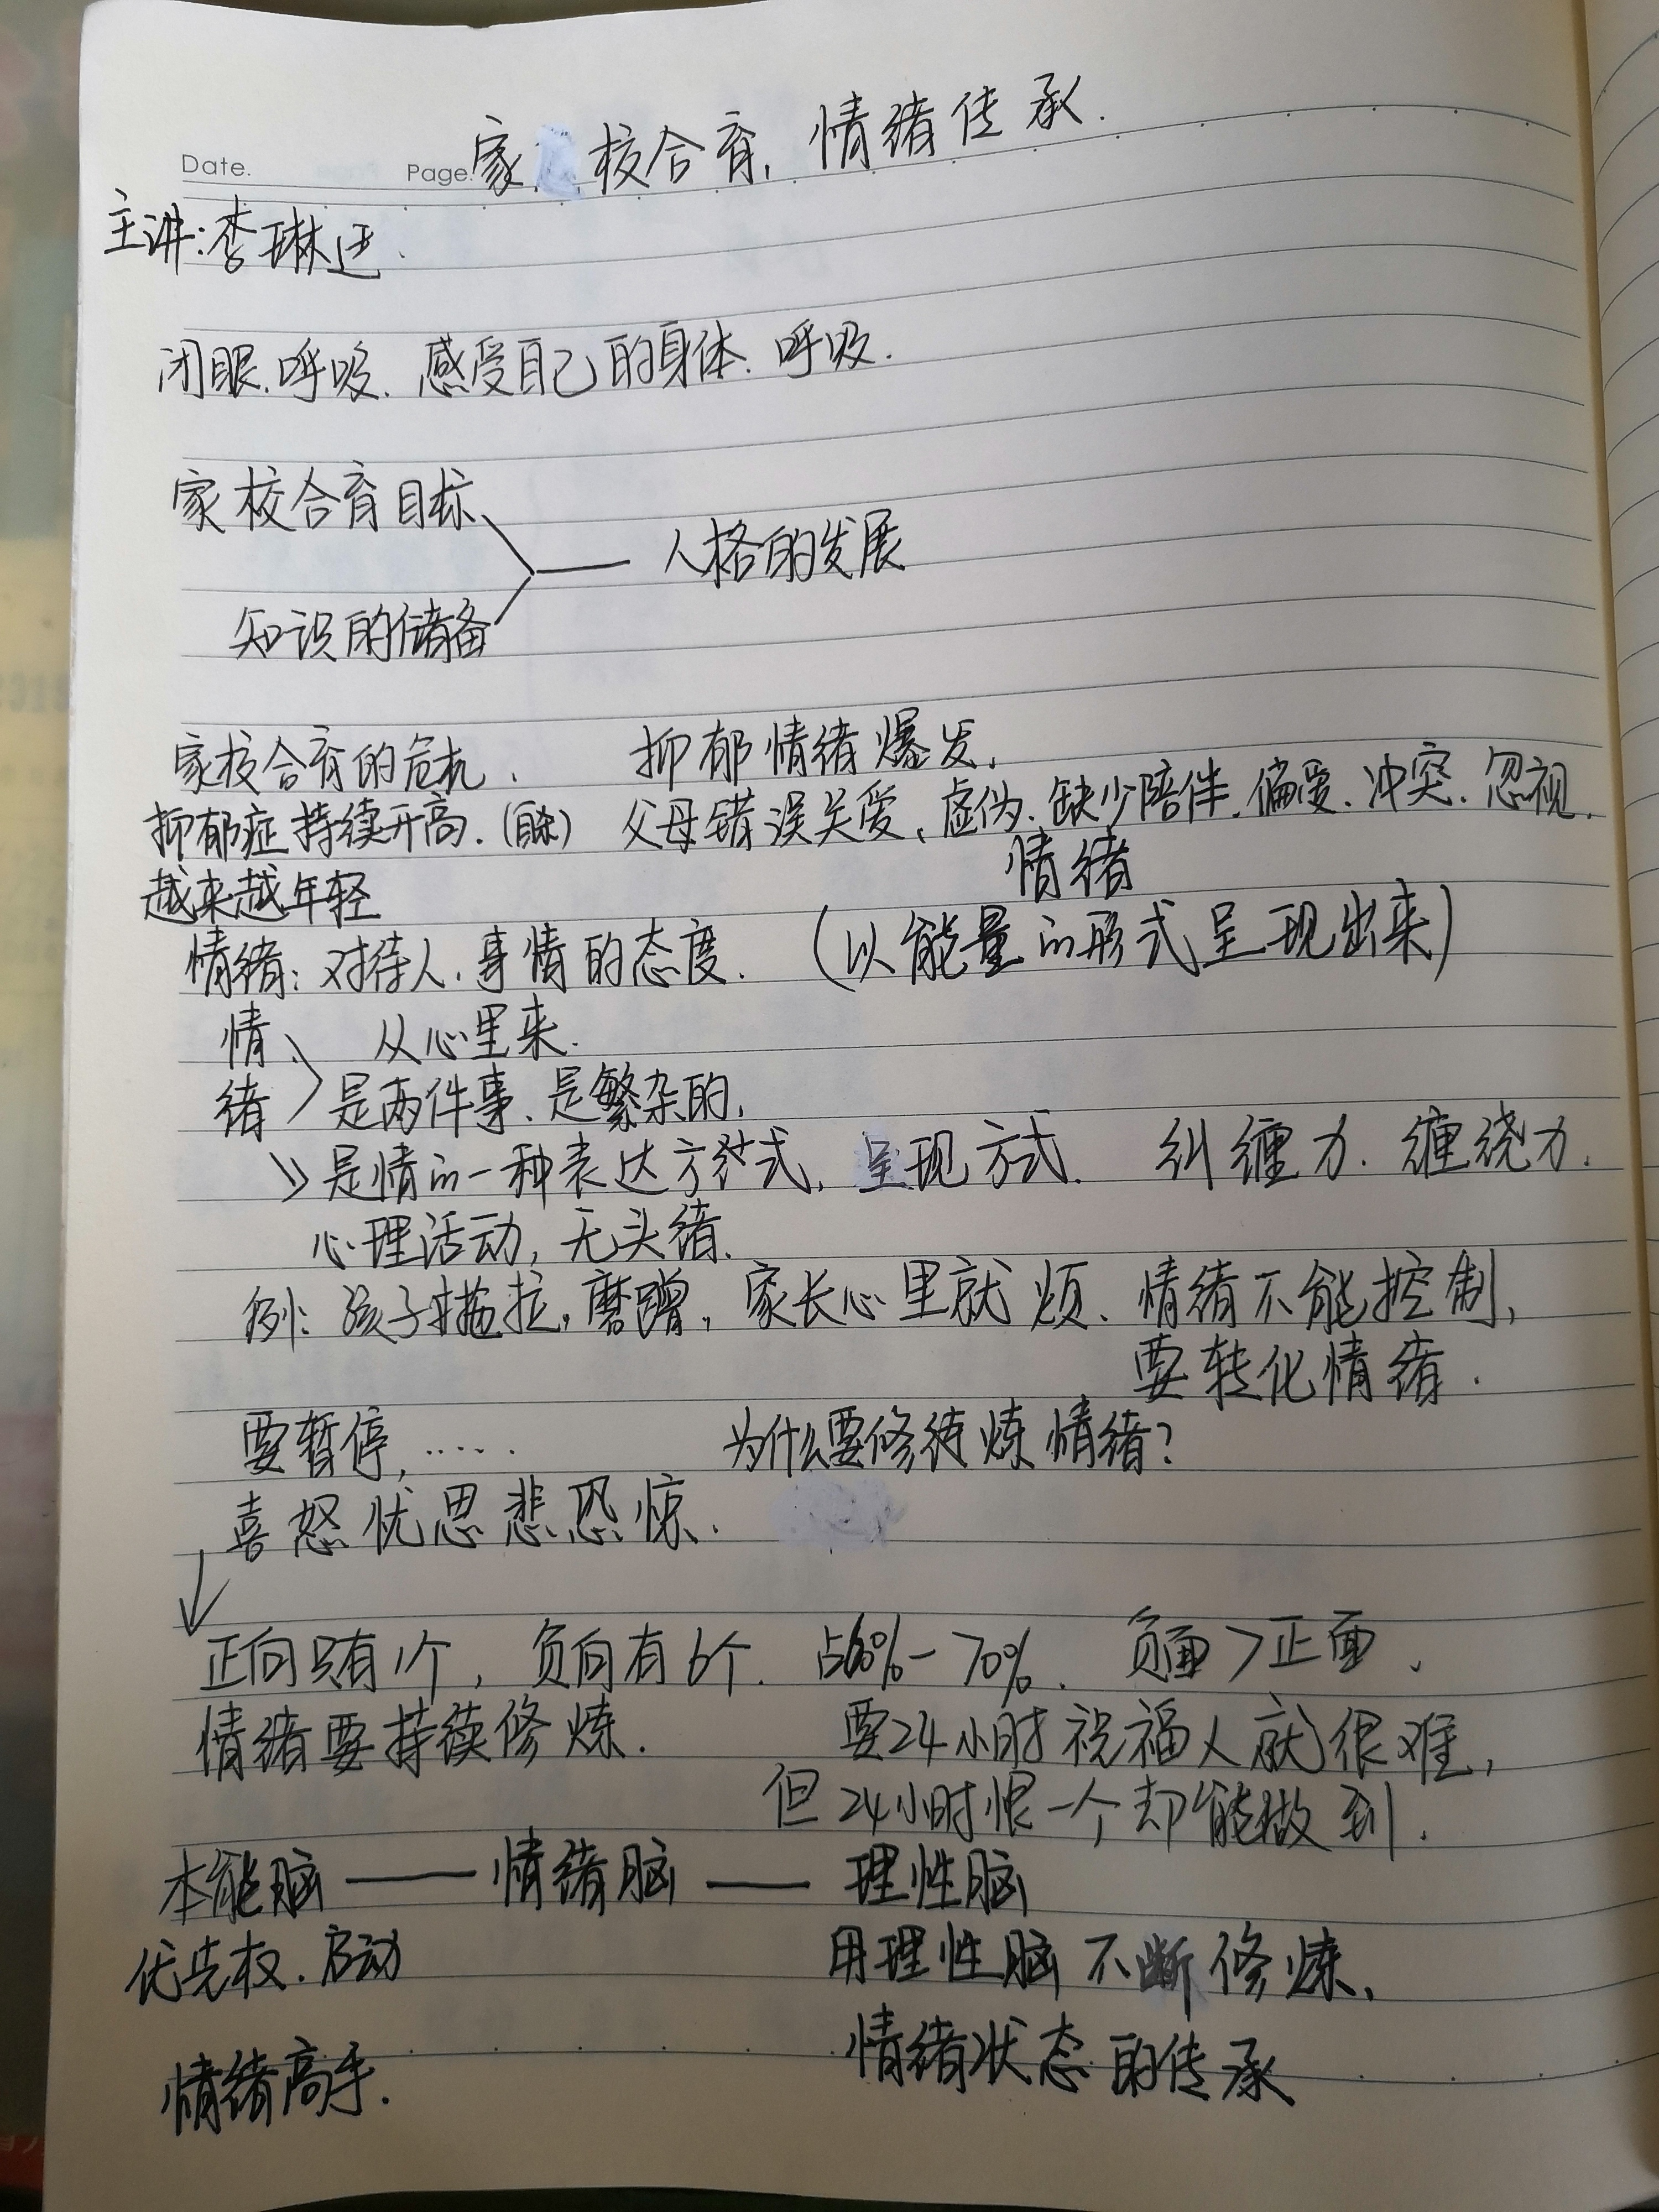 Date.
Page.
家校合育,情绪传承.
主讲:李琳
闭眼.呼吸.感受自己的身体.呼吸.
家校合育目标
人格的发展
知识的储备
家校合育的危机. 抑郁情绪爆发,
抑郁症持续开高. 父母错误关爱,虚伪.缺少陪伴.偏爱.冲突.忽视.
情绪
越来越年轻
情绪:对待人.事情的态度. (以能量的形式呈现出来)
情、 从心里来.
绪 是两件事.是繁杂的,
是情的一种表达方式,呈现方式. 纠缠力.缠绕力.
心理活动,无头绪.
例:孩子拖拉,磨蹭,家长心里就烦、情绪不能控制,
要转化情绪.
要暂停,..... 为什么要修炼情绪?
喜怒忧思悲恐惊.
正向只有1个,负向有6个.占60%-70%.负面>正面、
情绪要持续修炼. 要24小时祝福人就很难,
但24小时恨一个却能做到.
本能脑——情绪脑——理性脑
优先权.启动 用理性脑不断修炼、
情绪状态的传承
情绪高手.